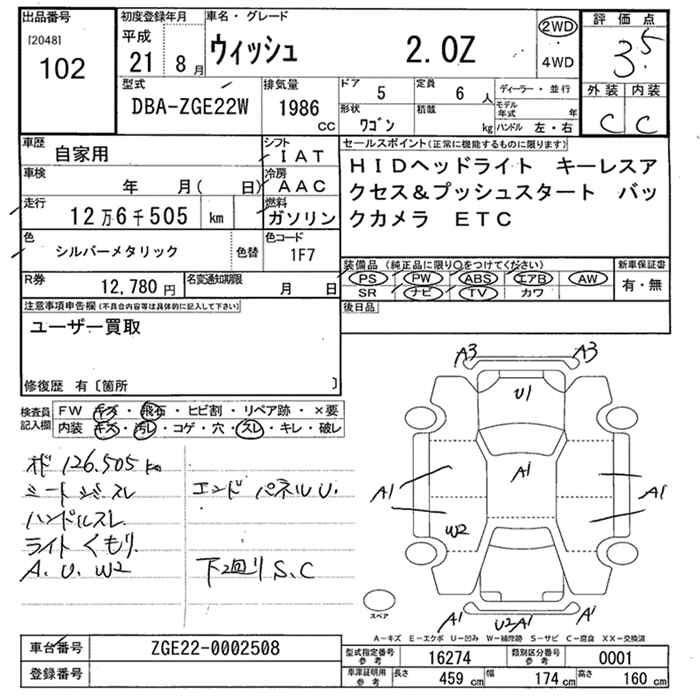 出品番号
[2048]
102
初度登録年月
平成
21 8月
車名・グレード
ウィッシュ 2.0Z
2WD
4WD
評価点
3.5
外装 内装
C C
型式
DBA-ZGE22W
排気量
1986
CC
ドア 5
定員 6人
形状 ワゴン
積載 kg
ディーラー・並行
モデル年式 年
ハンドル 左・右
車歴
自家用
シフト
IAT
車検
年 月( 日)
冷房
AAC
走行
12万6千505 km
燃料
ガソリン
色
シルバーメタリック
色替
色コード
1F7
R券
12,780 円
名変通知期限
月 日
セールスポイント(正常に機能するものに限ります)
HIDヘッドライト キーレスア
クセス&プッシュスタート バッ
クカメラ ETC
装備品(純正品に限り○をつけてください)
PS PW ABS エアB AW
SR ナビ TV カワ
新車保証書
有・無
後日品
注意事項申告欄(不具合内容等は具体的に記入して下さい)
ユーザー買取
修復歴 有〔箇所 〕
検査員
記入欄
FW キズ・飛石・ヒビ割・リペア跡・×要
内装 キズ・汚レ・コゲ・穴・スレ・キレ・破レ
オド 126.505 km
ハンドルスレ
ライトくもり
A.U.W2
エンドパネルU.
下回りS.C
A3 A3
U1
A1
A1 A1
W2
A1 U2A1 A1
スペア
A−キズ E−エクボ U−凹み W−補修跡 S−サビ C−腐食 XX−交換済
車台番号
ZGE22-0002508
登録番号
型式指定番号
参考
16274
類別区分番号
参考
0001
車庫証明用
参考
長さ 459 cm
幅 174 cm
高さ 160 cm